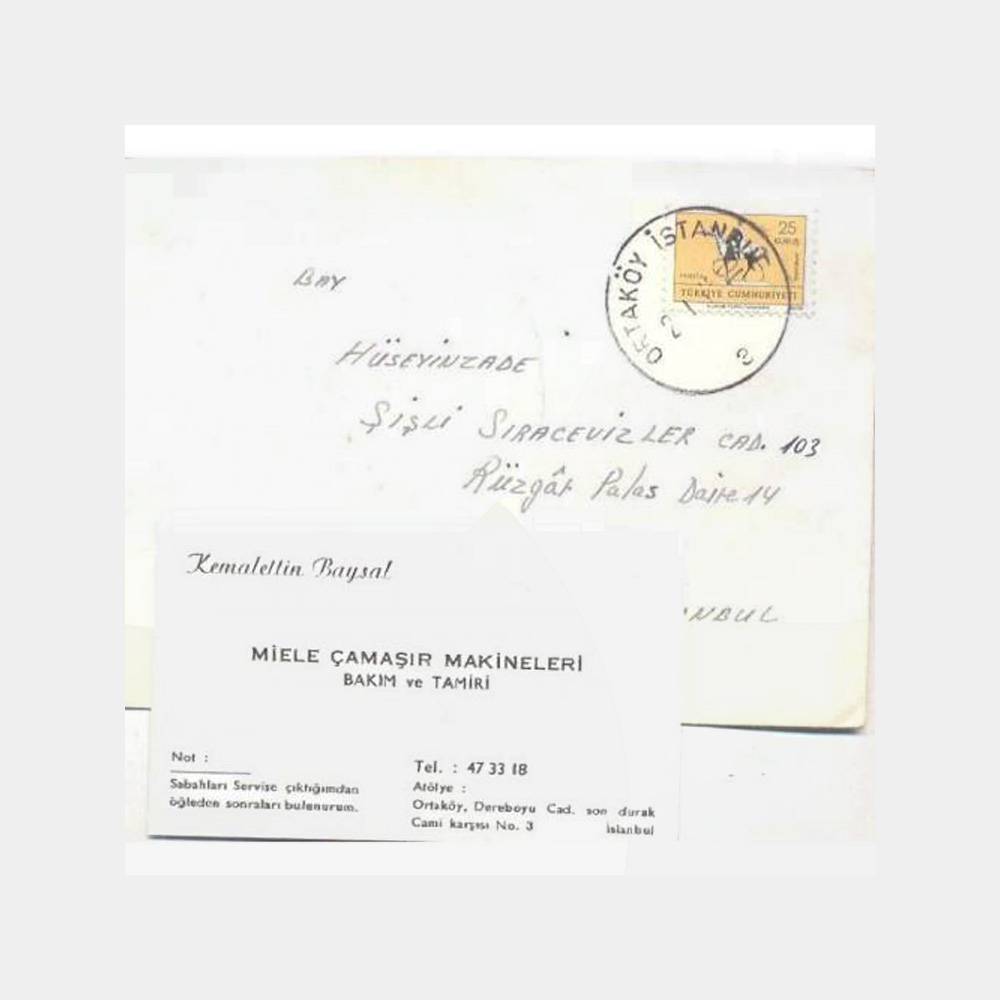 ORTAKÖY İSTANBUL
2
25
KURUŞ
TÜRKİYE CUMHURİYETİ
BAY
HÜSEYİNZADE
ŞİŞLİ SIRACEVİZLER CAD. 103
Rüzgâr Palas Daire 14
NBUL
Kemalettin Baysal
MİELE ÇAMAŞIR MAKİNELERİ
BAKIM ve TAMİRİ
Not :
Sabahları Servise çıktığımdan
öğleden sonraları bulunurum.
Tel. : 47 33 18
Atölye :
Ortaköy, Dereboyu Cad. son durak
Cami karşısı No. 3 İstanbul